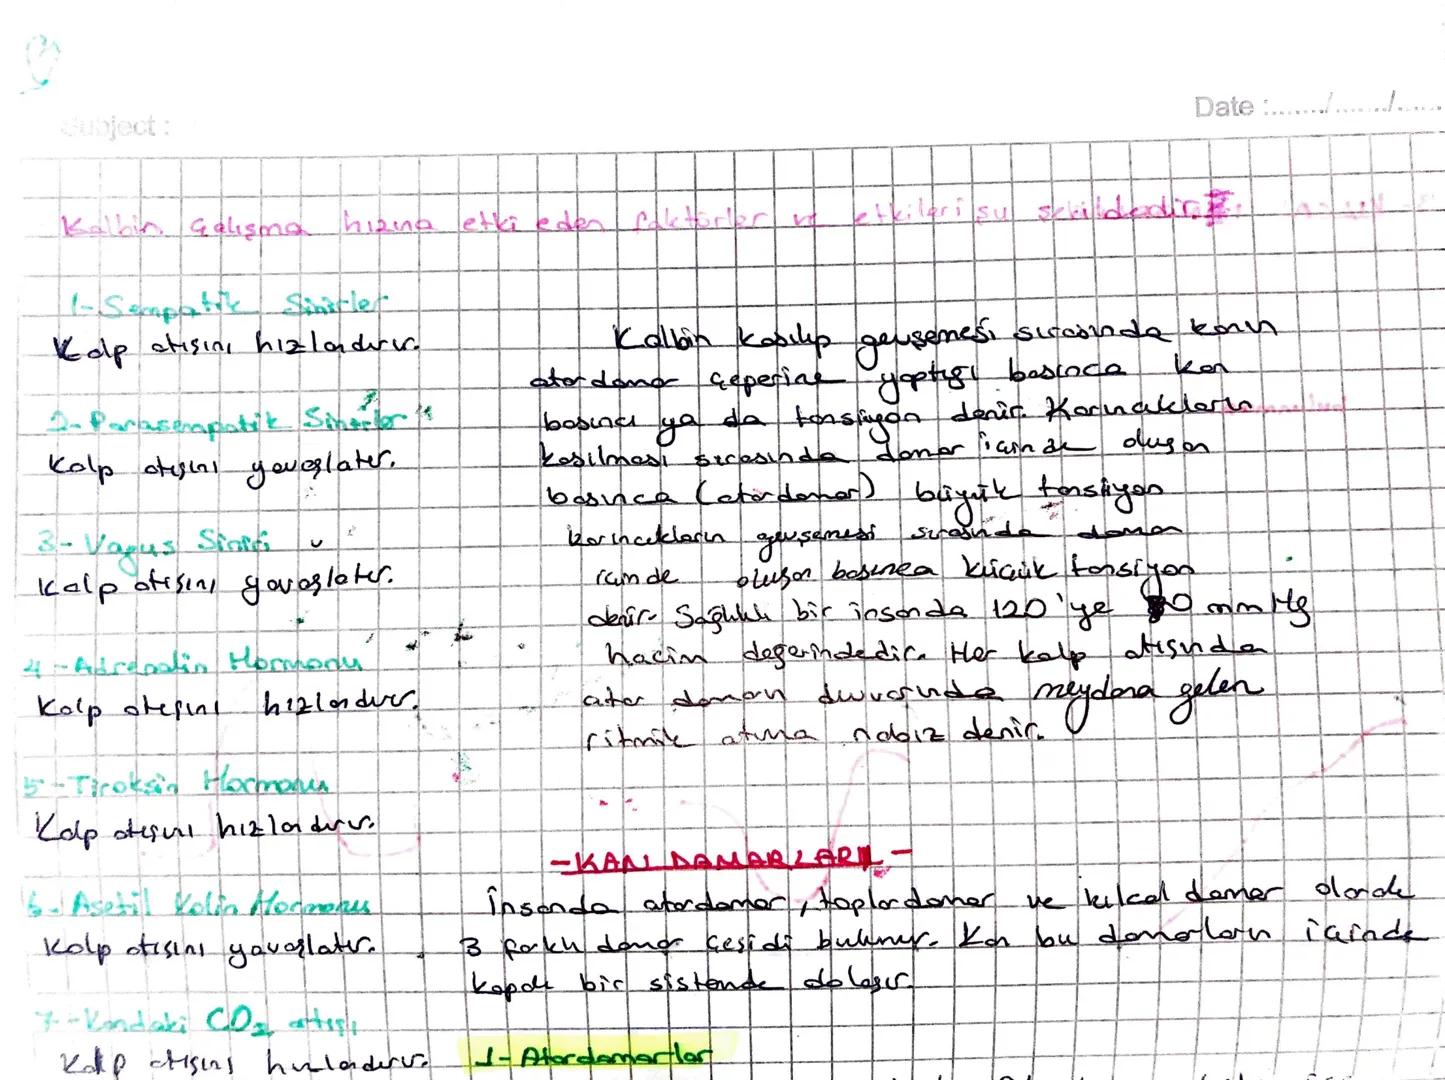 Subject :
Date :......../......../......
Kalbin çalışma hızına etki eden faktörler ve etkileri şu şekildedir.
1-Sempatik Sinirler
Kalp atışını hızlandırır.
2-Parasempatik Sinirler
Kalp atışını yavaşlatır.
3-Vagus Siniri
Kalp atışını yavaşlatır.
4-Adrenalin Hormonu
Kalp atışını hızlandırır.
5-Tiroksin Hormonu
Kalp atışını hızlandırır.
6-Asetil Kolin Hormonu
Kalp atışını yavaşlatır.
7-Kandaki CO2 artışı
Kalp atışını hızlandırır.
Kalbin kasılıp gevşemesi sırasında kanın
atardamar çeperine yaptığı basınca kan
basıncı ya da tansiyon denir. Karıncıkların
kasılması sırasında damar içinde oluşan
basınca (atardamar) büyük tansiyon
karıncıkların gevşemesi sırasında damar
içinde oluşan basınca küçük tansiyon
denir. Sağlıklı bir insanda 120'ye 80 mmHg
hacim değerindedir. Her kalp atışında
atar damarı duvarında meydana gelen
ritmik atıma nabız denir.
-KAN DAMARLARI-
İnsanda atardamar, toplardamar ve kılcal damar olarak
3 farklı damar çeşidi bulunur. Kan bu damarların içinde
kapalı bir sistemde dolaşır.
1-Atardamarlar